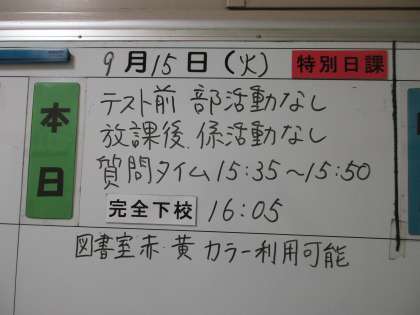 9月15日(火) 特別日課
本日
テスト前 部活動なし
放課後 係活動なし
質問タイム 15:35～15:50
完全下校 16:05
図書室 赤・黄 カラー利用可能